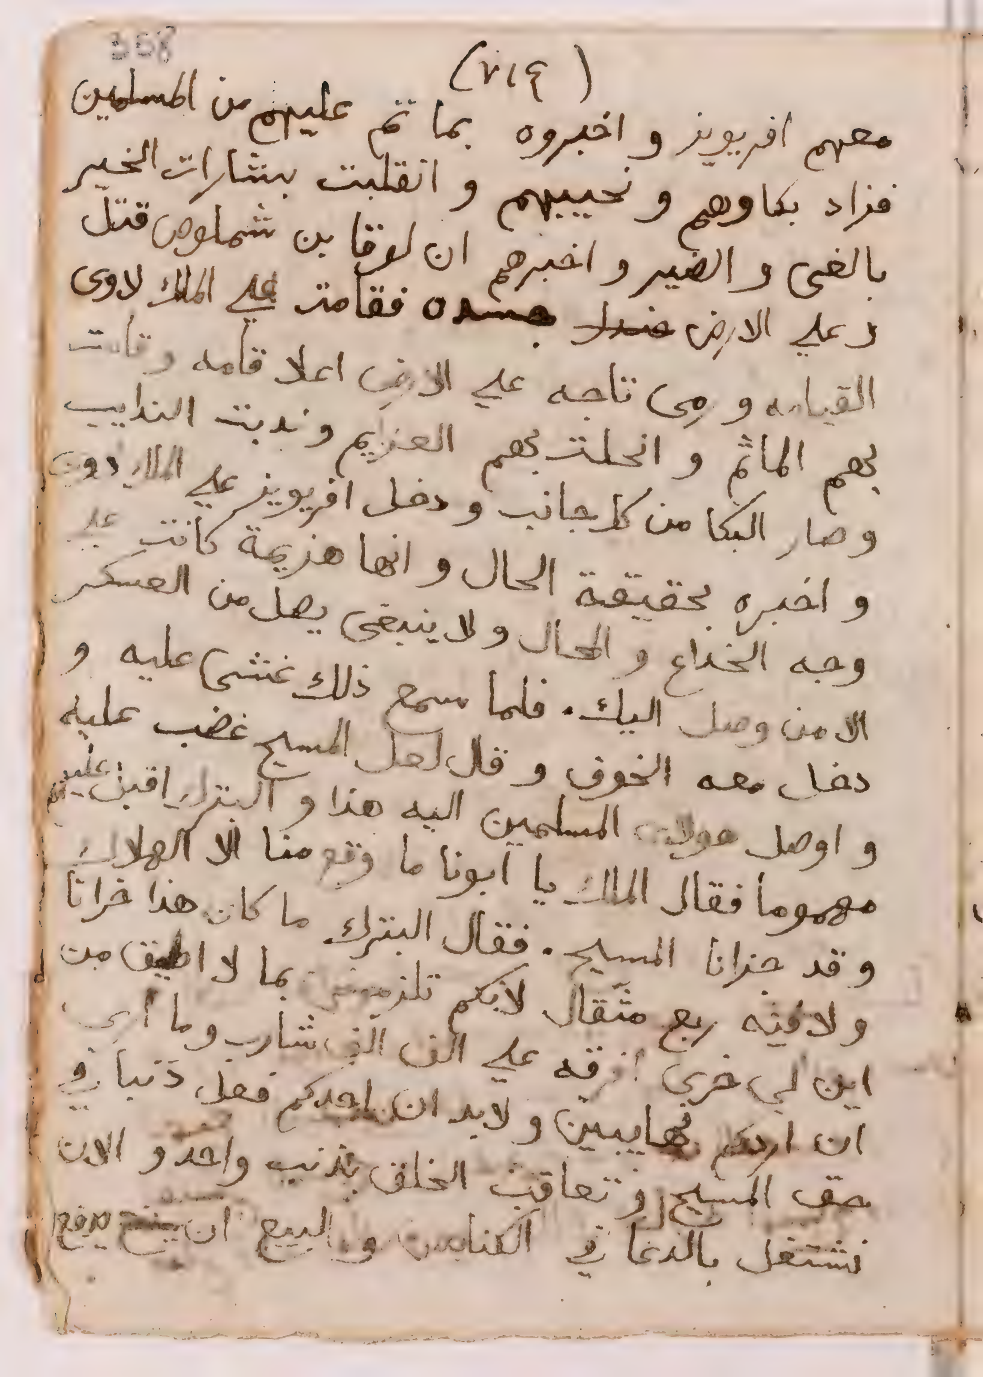 358
(٧١٤)
معهم افريويز و اخبروه بما تم عليهم من المسلمين
فزاد بكاوهم و نحيبهم و انقلبت بشارات الخير
بالغى و الضير و اخبرهم ان لوقا بن شملوص قتل
و على الارض جسده فقامت علي الملك لاوى
القيامه و رمى تاجه علي الارض اعلا قامه و قامت
بهم الماثم و انحلت بهم العزايم و ندبت الندايب
و صار البكا من كل جانب و دخل افريويز علي الملك لاوى
و اخبره بحقيقة الحال و انها هزيمة كانت علي
وجه الخداع و المحال و لا ينبغى يصل من العسكر
الا من وصل اليك. فلما سمع ذلك غشى عليه و
دخل معه الخوف و قال لعل المسيح غضب عليه
و اوصل هولاى المسلمين اليه هذا و البترك اقبل عليهم
مهموما فقال الملك يا ابونا ما وقع منا الا الهلاك
و قد جزانا المسيح. فقال البترك ما كان هذا خرانا
و لا فيه ربع مثقال لانكم تلزمونى بما لا اطيق من
اين لي خرى افرقه علي الف الف شارب و ما أرى
ان اردكم خايبين و لابد ان احدكم فعل ذنبا في
حق المسيح و تعاقب الخلق بذنب واحد و الان
نشتغل بالدعا في الكنايس و البيع ان يرفع